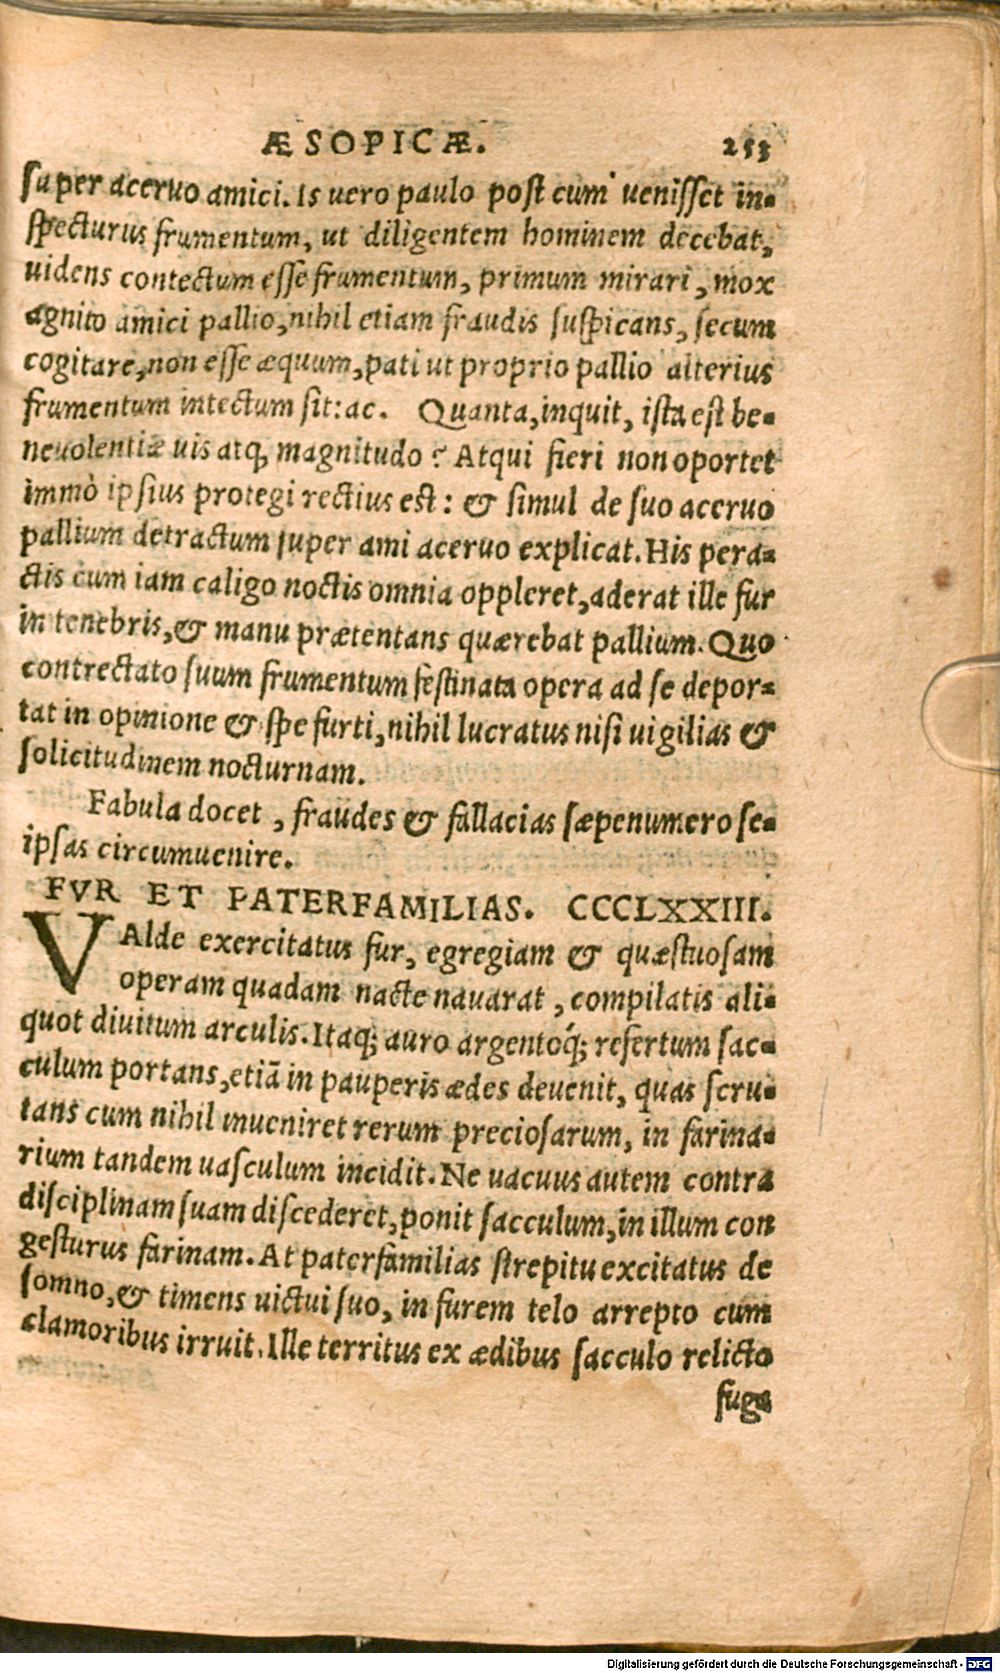 ÆSOPICÆ. 253
super acervo amici. Is uero paulo post cum uenisset in-
specturus frumentum, ut diligentem hominem decebat,
uidens contectum esse frumentum, primum mirari, mox
agnito amici pallio, nihil etiam fraudis suspicans, secum
cogitare, non esse æquum, pati ut proprio pallio alterius
frumentum intectum sit: ac. Quanta, inquit, ista est be-
neuolentiæ uis atq; magnitudo? Atqui fieri non oportet
immò ipsius protegi rectius est: & simul de suo aceruo
pallium detractum super ami aceruo explicat. His pera-
ctis cum iam caligo noctis omnia oppleret, aderat ille fur
in tenebris, & manu prætentans quærebat pallium. Quo
contrectato suum frumentum festinata opera ad se depor-
tat in opinione & spe furti, nihil lucratus nisi uigilias &
solicitudinem nocturnam.
Fabula docet, fraudes & fallacias sæpenumero se-
ipsas circumuenire.
FVR ET PATERFAMILIAS. CCCLXXIII.
VAlde exercitatus fur, egregiam & quæstuosam
operam quadam nacte nauarat, compilatis ali-
quot diuitum arculis. Itaq; auro argentoq́; refertum sac-
culum portans, etiā in pauperis ædes deuenit, quas scru-
tans cum nihil inueniret rerum preciosarum, in farina-
rium tandem uasculum incidit. Ne uacuus autem contra
disciplinam suam discederet, ponit sacculum, in illum con
gesturus farinam. At paterfamilias strepitu excitatus de
somno, & timens uictui suo, in furem telo arrepto cum
clamoribus irruit. Ille territus ex ædibus sacculo relicto
fuga
Digitalisierung gefördert durch die Deutsche Forschungsgemeinschaft - DFG